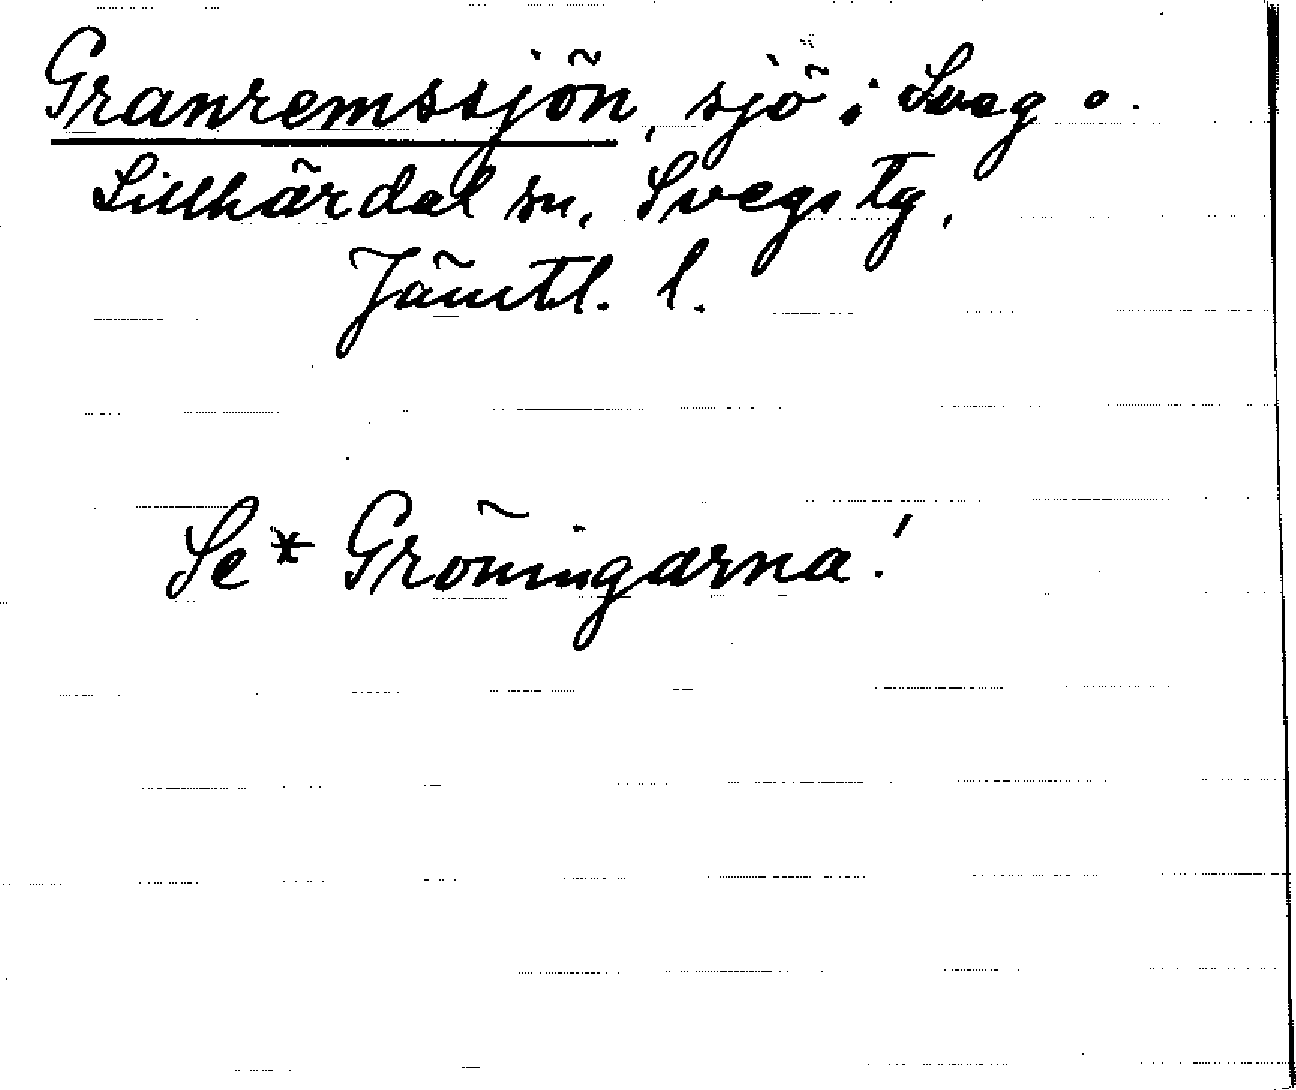 Granremssjön, sjö i Sveg o.
Lillhärdal sn, Svegs tg,
Jämtl. l.
Se * Gröningarna!